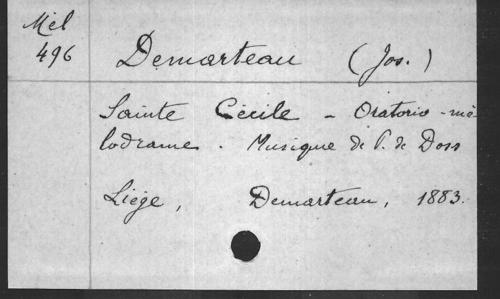 Mél
496
Demarteau (Jos.)
Sainte Cécile - Oratorio - mé
lodrame. Musique de P. de Doss
Liège, Demarteau, 1883.